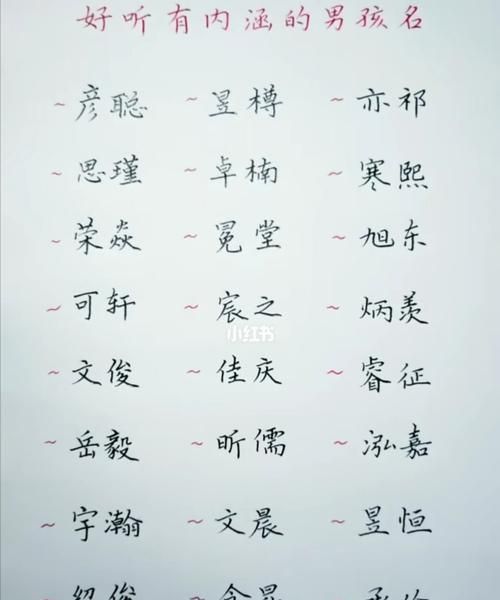 好听有内涵的男孩名
~彦聪 ~昱樽 ~亦祁
~思瑾 ~卓楠 ~寒熙
~荣焱 ~冕堂 ~旭东
~可轩 ~宸之 ~炳羡
小红书
~文俊 ~佳庆 ~睿征
~岳毅 ~昕儒 ~泓嘉
~宇瀚 ~文晨 ~昱恒